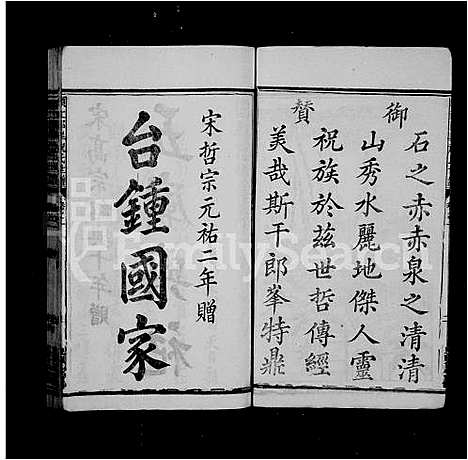 御
贊
石之赤赤泉之清清
山秀水麗地傑人靈
祝族於茲世哲傳經
美哉斯干郎峯特鼎
宋哲宗元祐二年贈
台鍾國家
FamilySearch